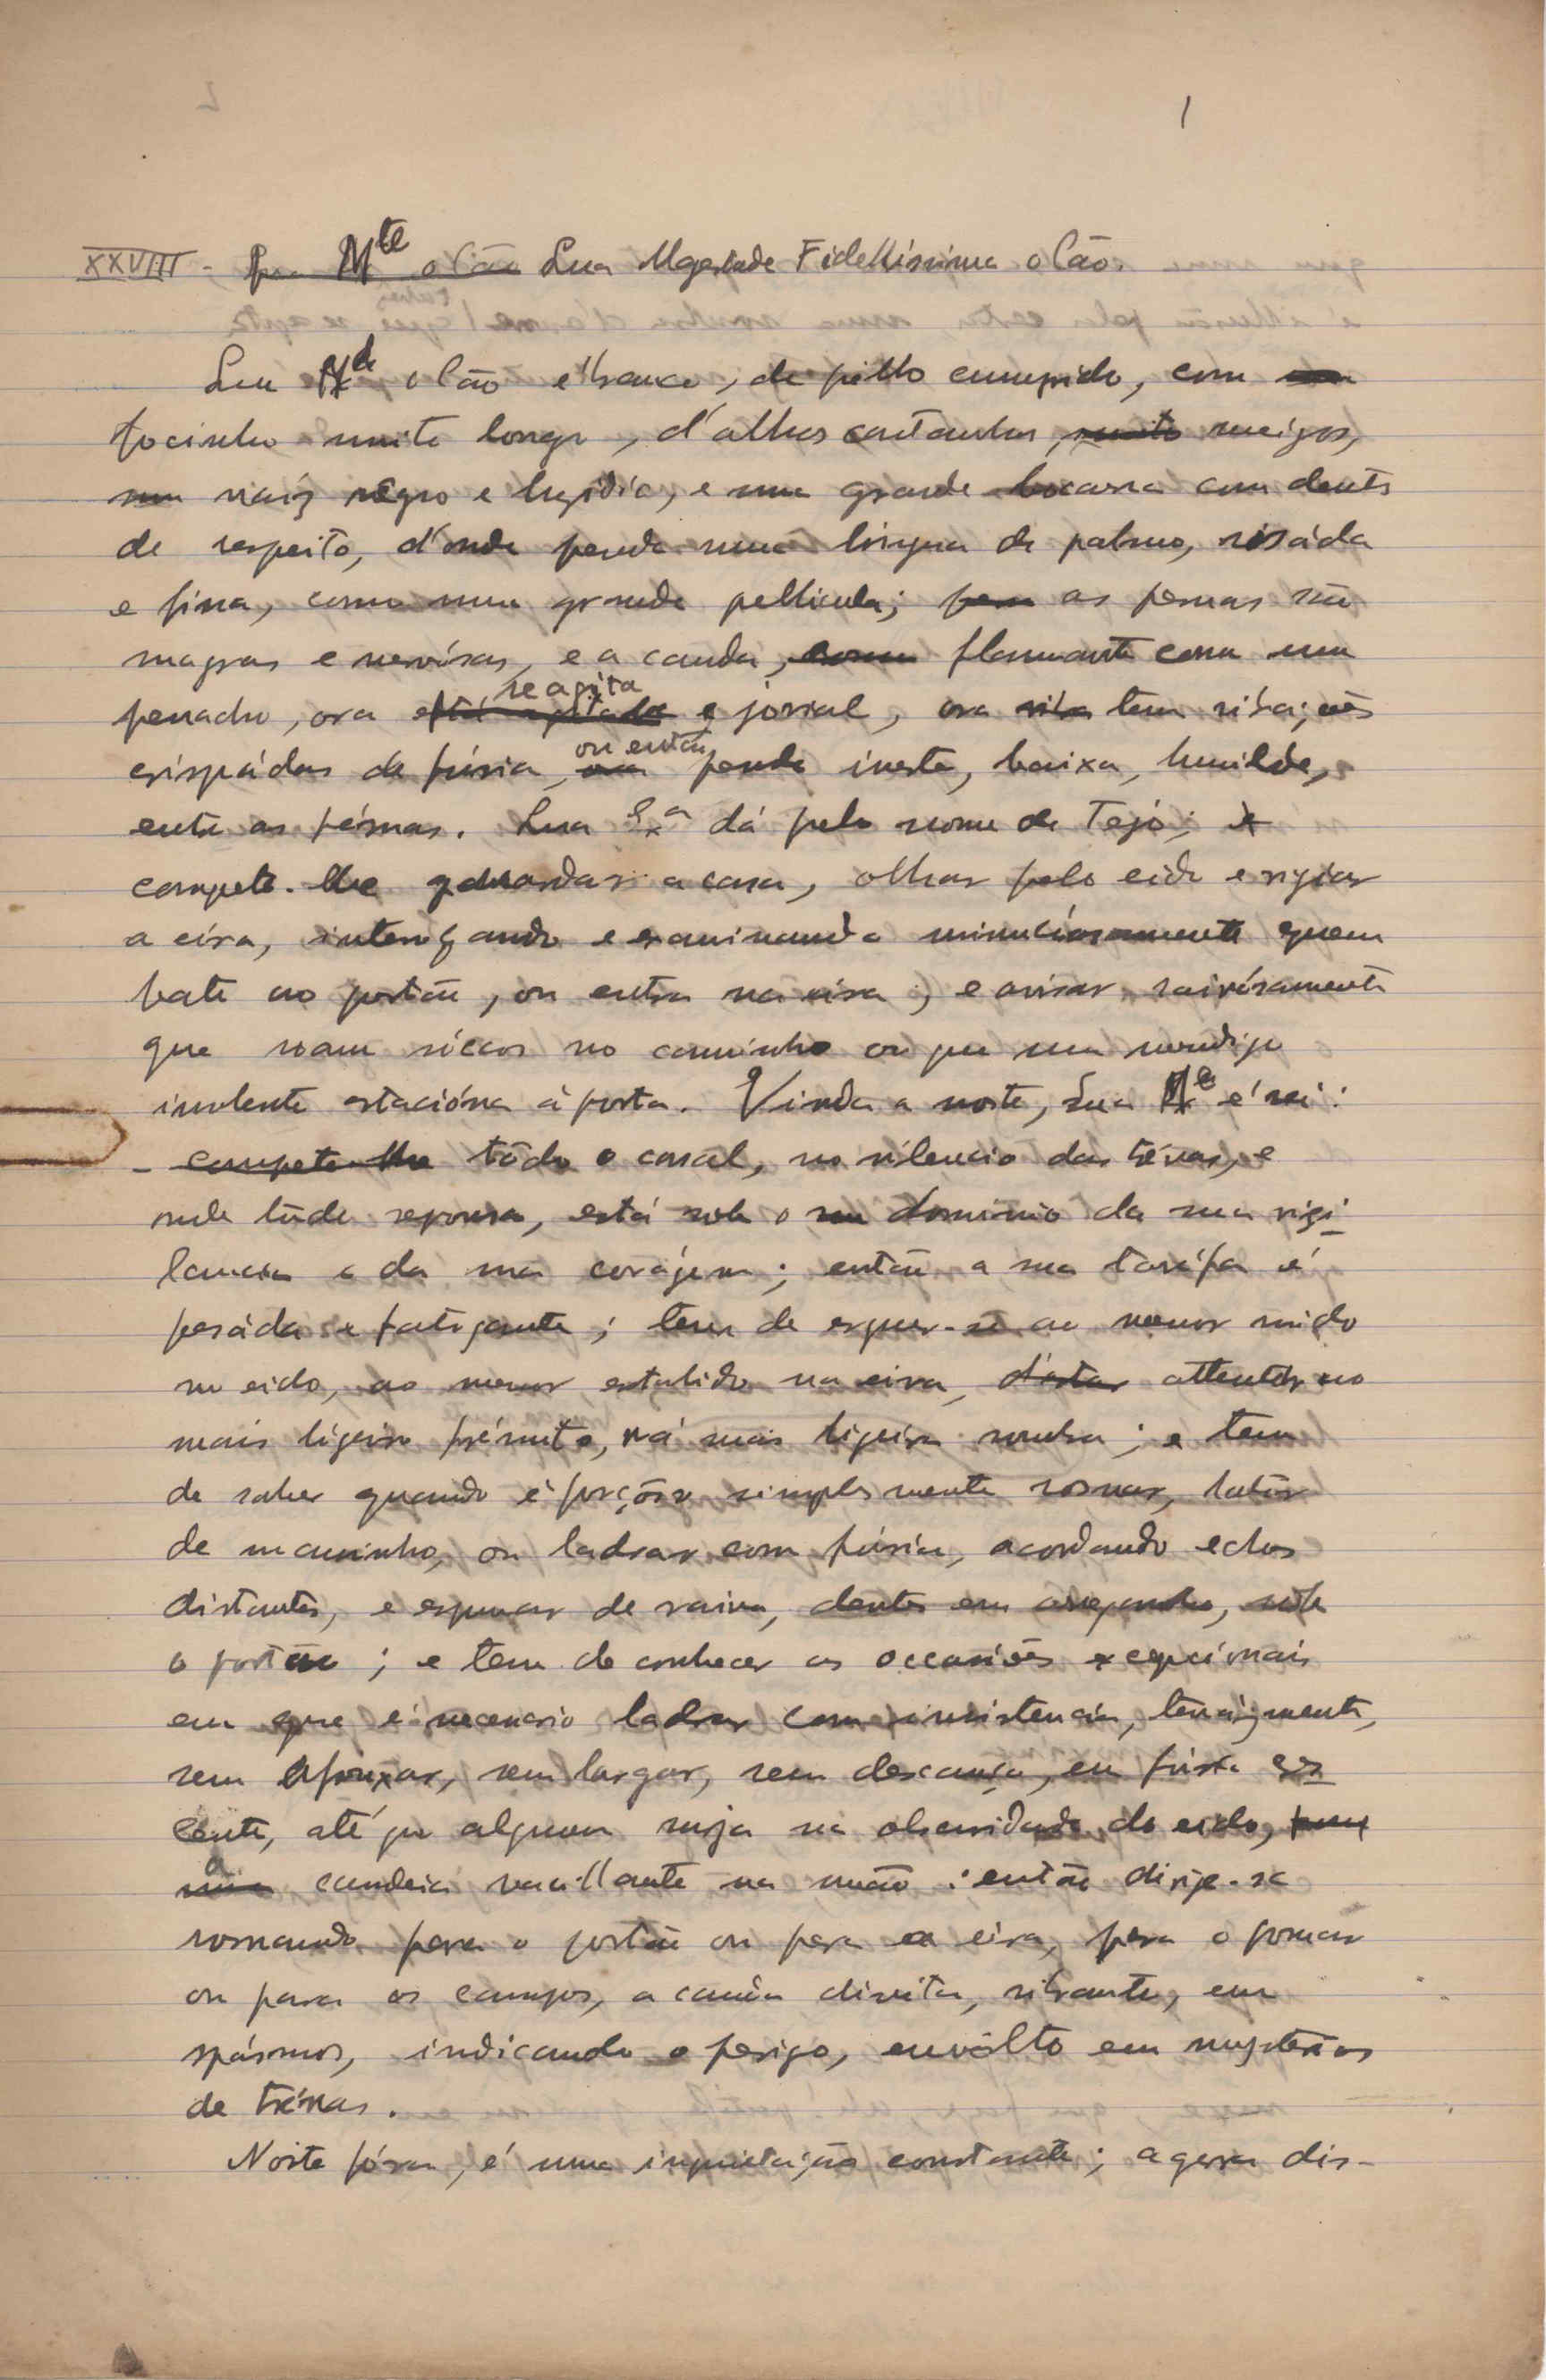 1
XXVIII - Sua Magestade Fidellissima o Cão.
Sua Mde o Cão é branco, de pêllo cumprido, com
focinho muito longo, d'olhos castanhos, muito meigos,
nariz negro e lusidio, e uma grande bocarra com dentes
de respeito, d'onde pende uma lingua de palmo, rosáda
e fina, como uma grande pellicula; as pernas são
magras e nervósas, e a cauda, flammante como um
penacho, ora se agita jovial, ora tem vibrações
crispádas de fúria, ou então pende inerte, baixa, humilde,
entre as pérnas. Sua Exa dá pelo nome de Tejo;
compete-lhe guardar a casa, olhar pelo eido e vigiar
a eira, interrogando e examinando minuciosamente quem
bate ao portão, ou entra na eira; e avisar raivósamente
que soam sóccos no caminho ou que um mendigo
insolente estacióna á porta. Vinda a noite, Sua Me é rei:
- compete-lhe tôdo o casal, no silencio das trévas, e
onde tudo repousa, está sob o seu dominio da sua vigi-
lancia e da sua corájem; então a sua taréfa é
pesáda e fatigante; tem de erguer-se ao menor ruido
no eido, ao menor estalido na eira, d'estar attento ao
mais ligeiro frémito, á mais ligeira sombra; e tem
de saber quando é forçôso simplesmente rosnar, latir
de mansinho, ou ladrar com fúria, acordando echos
distantes, e espumar de raiva, dentes em arreganho, sob
o portão; e tem de conhecer as occasiões excepcionais
em que é necessario ladrar com insistencia, tenázmente,
sem afrouxar, sem largar, sem descanço, em fúria cres-
cente, até que alguem surja na obscuridade do eido,
a candeia vacillante na mão: então dirige-se
rosnando para o portão ou para a eira, para o pomar
ou para os campos, a cauda direita, vibrante, em
spásmos, indicando o perigo, envôlto em mysterios
de trévas.
Noite fóra, é uma inquietação constante; agora dis-